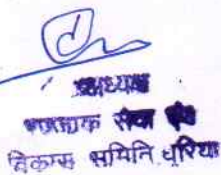 अध्यक्ष
सेवा एवं
विकास समिति, धरिया